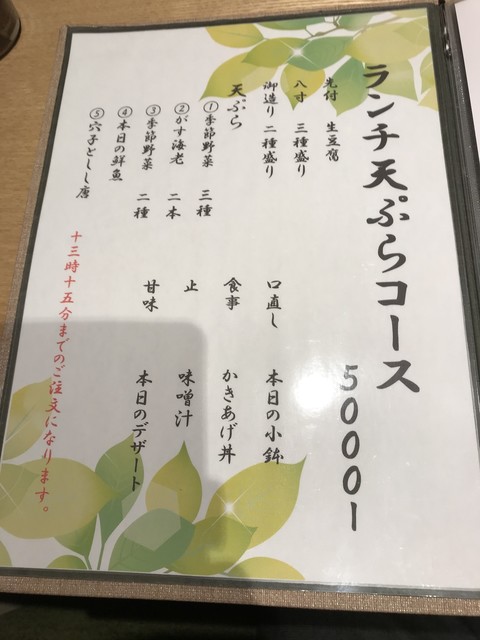 ランチ天ぷらコース
5000ー
先付 生豆腐
八寸 三種盛り
御造り 二種盛り
天ぷら
①季節野菜 三種
②がす海老 二本
③季節野菜 二種
④本日の鮮魚
⑤穴子としし唐
口直し 本日の小鉢
食事 かきあげ丼
止 味噌汁
甘味 本日のデザート
十三時十五分までのご注文になります。